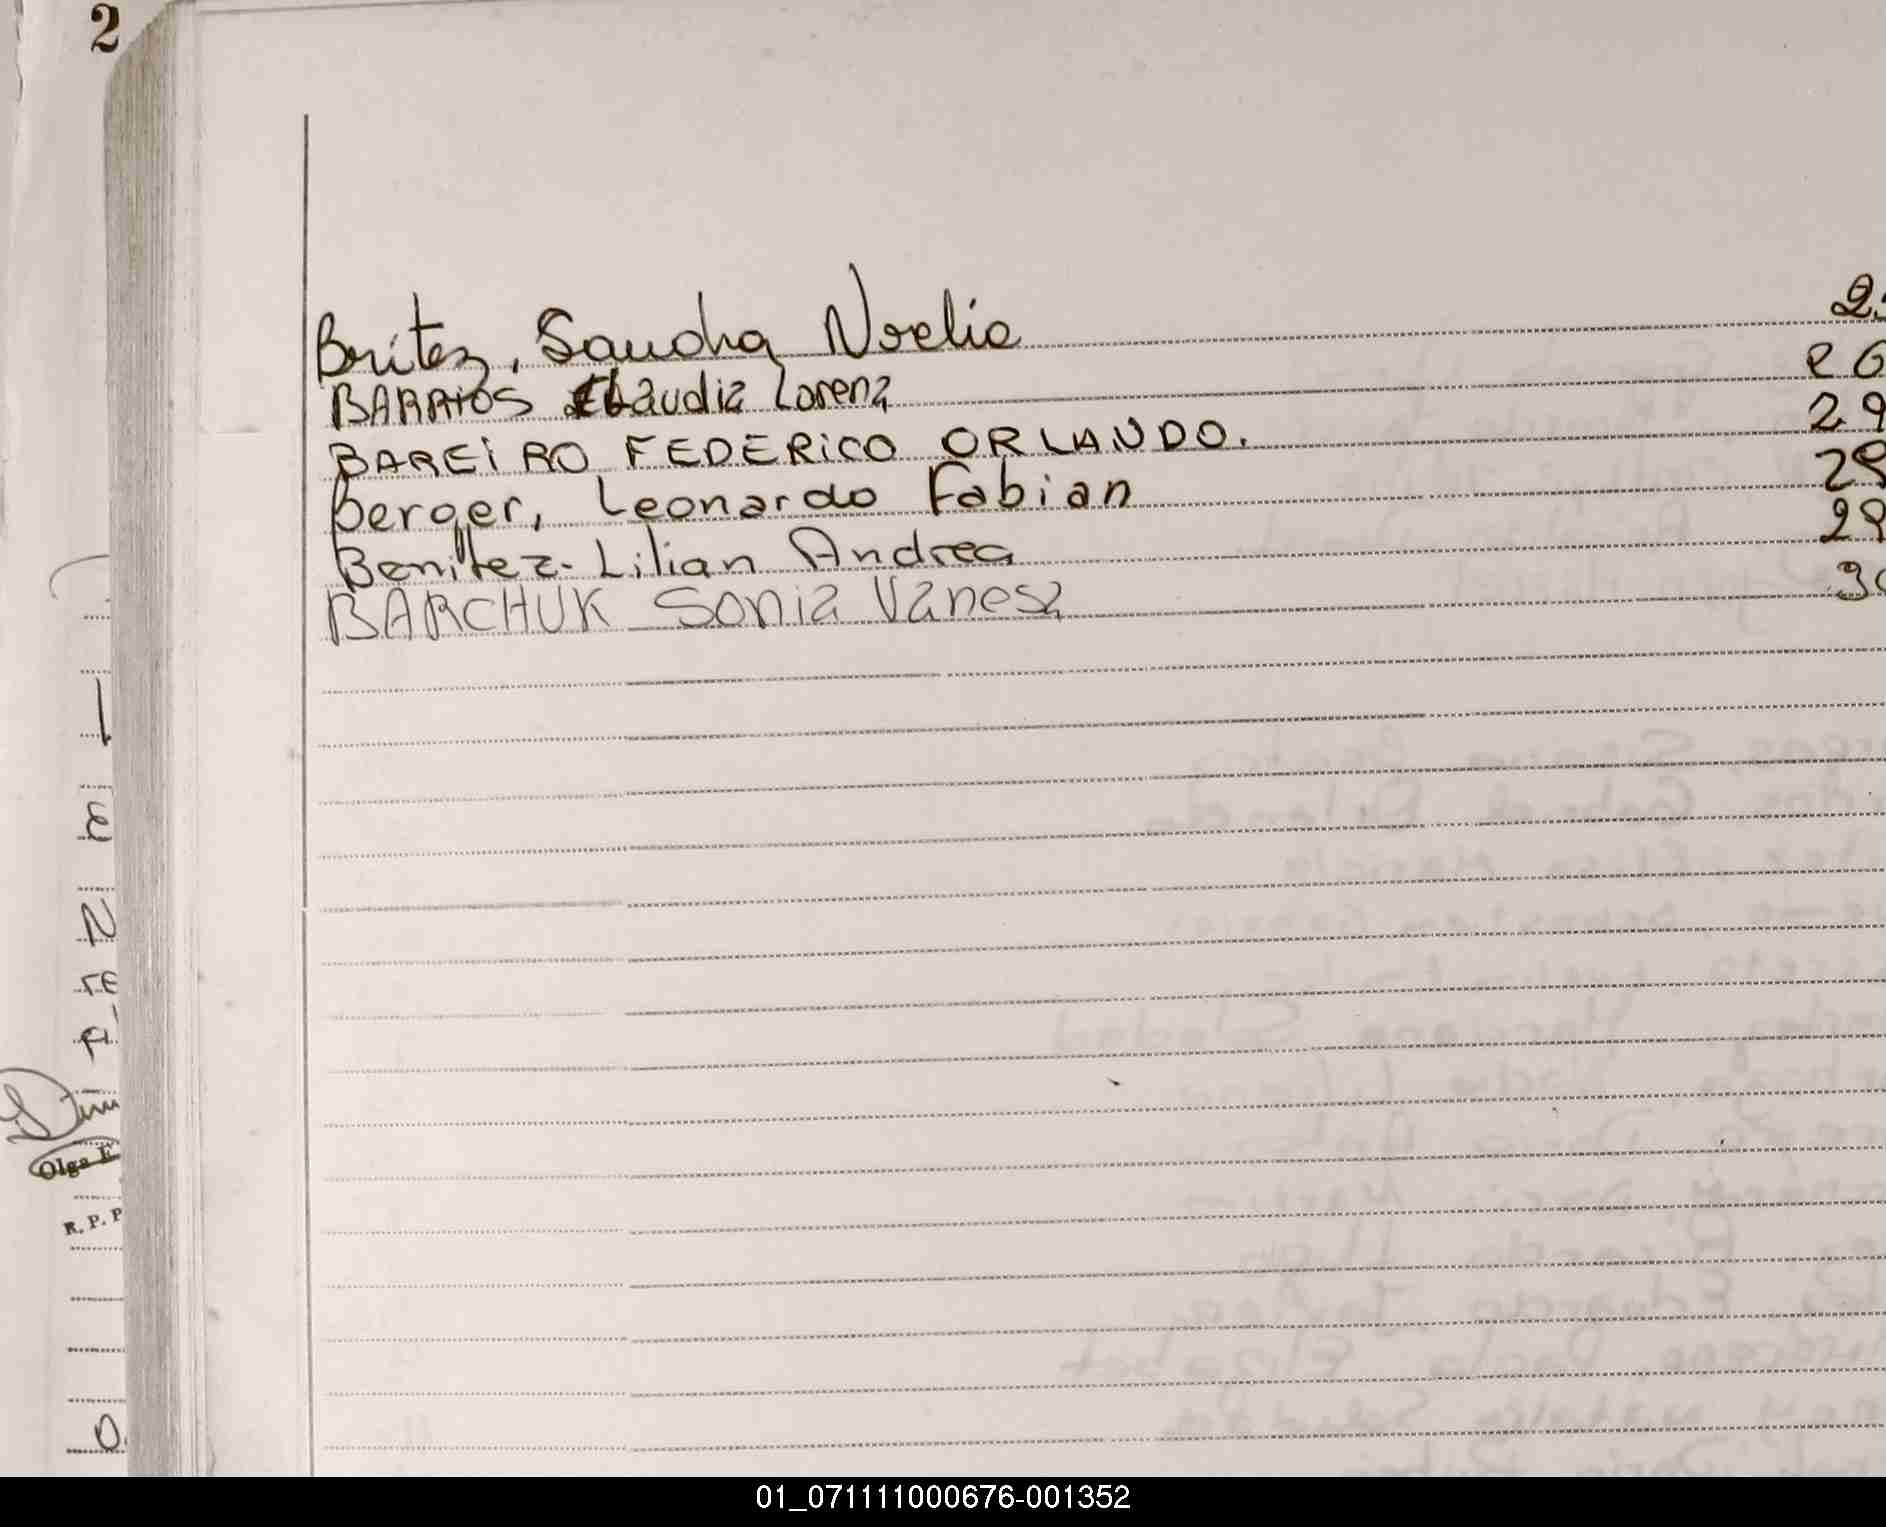 2
Britez, Sandra Noelia
BARRIOS Claudia Lorena
BAREIRO FEDERICO ORLANDO.
29
Berger, Leonardo Fabian
Benitez. Lilian Andrea
BARCHUK Sonia Vanesa
Olga E
R. P. P
01_071111000676-001352